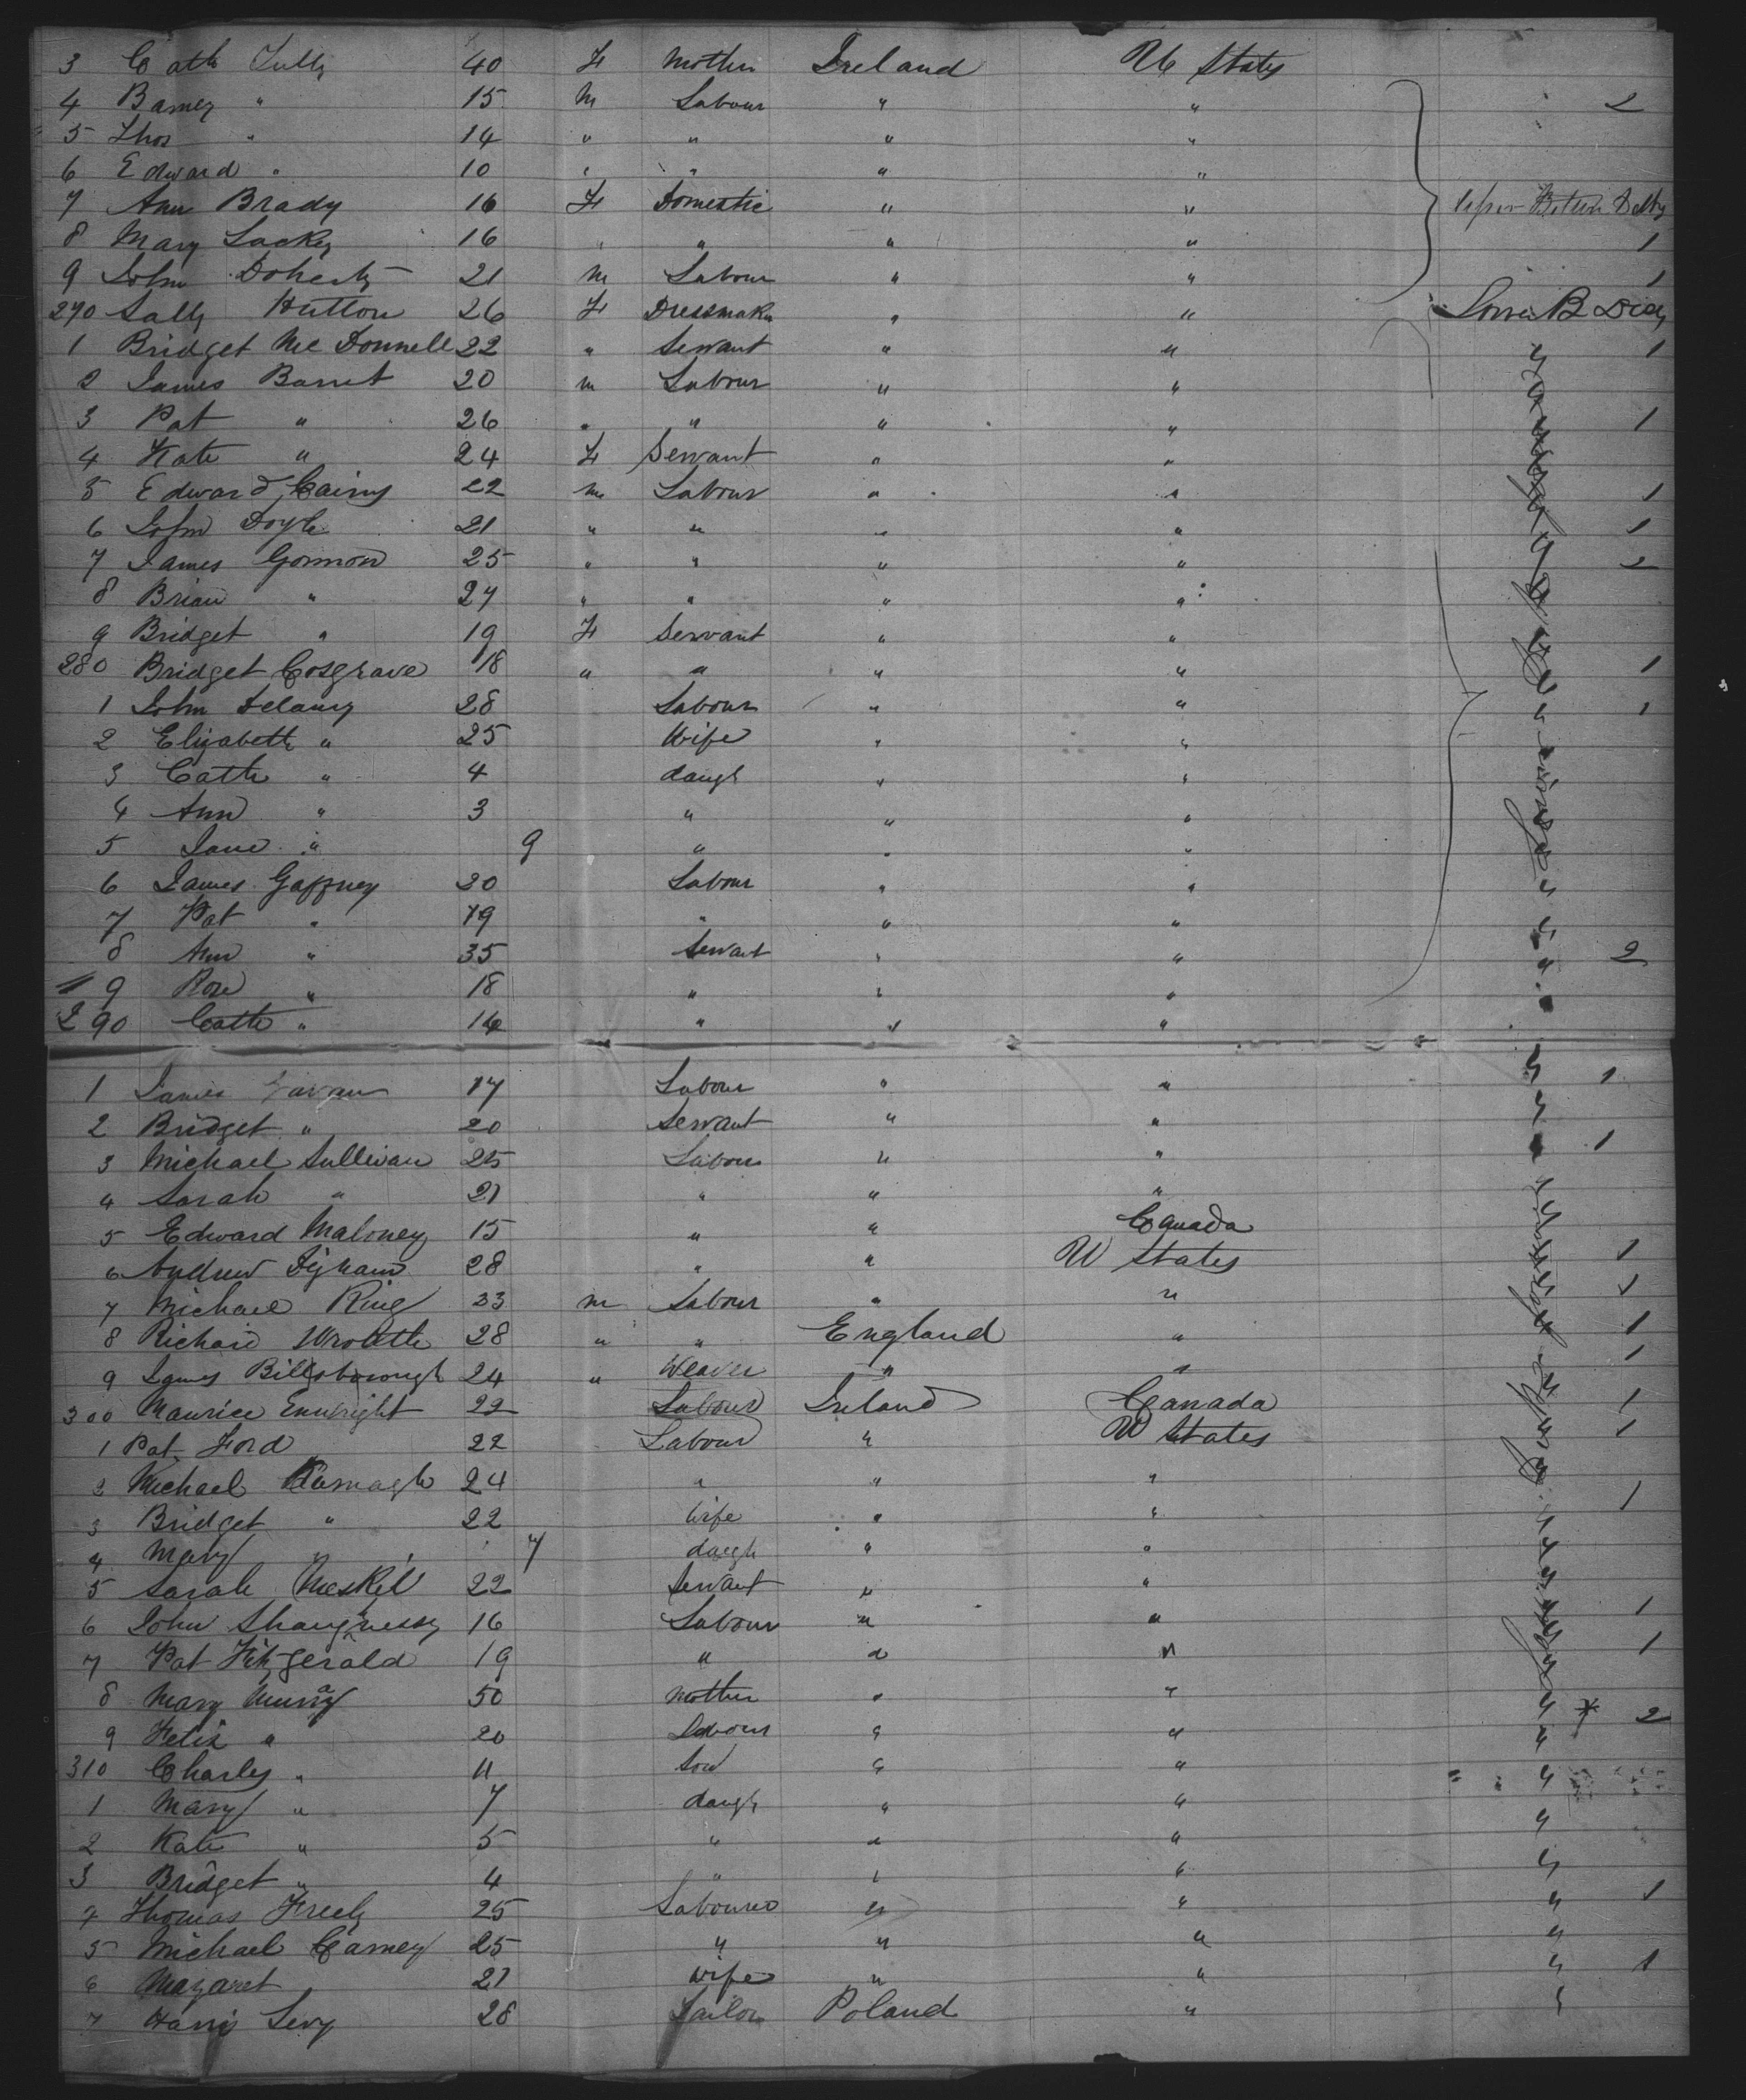 3 Cath Tully 40 F Mother Ireland U States
4 Barney " 15 M Labour " " 2
5 Thos " 14 " " " "
6 Edward " 10 " " " "
7 Ann Brady 16 F Domestic " "
8 Mary Lackey 16 " " " " 1
9 John Doherty 21 M Labour " " 1
270 Sally Hutton 26 F Dressmaker " "
1 Bridget Mc Donnell 22 " Servant " " " 1
2 James Barret 20 m Labour " "
3 Pat " 26 " " " " 1
4 Kate " 24 F Servant " "
5 Edward Cairns 22 m Labour " " 1
6 John Doyle 21 " " " " 1
7 James Gormon 25 " " " " 2
8 Brian " 24 " " " "
9 Bridget " 19 F Servant " "
280 Bridget Cosgrave 18 " " " " 1
1 John Delany 28 Labour " " " 1
2 Elizabeth " 25 Wife " "
3 Cath " 4 daugh " "
4 Ann " 3 " " "
5 Jane " 9 " " "
6 James Gaffney 20 Labour " " "
7 Pat " 19 " " " "
8 Ann " 35 Servant " " " 2
9 Rose " 18 " " "
290 Cath " 16 " " "
1 James 17 Labour " " " 1
2 Bridget " 20 Servant " " "
3 Michael Sullivan 25 Labour " " 1
4 Sarah " 21 " " " "
5 Edward Maloney 15 " " Canada
6 Andrew Dignam 28 " " U States 1
7 Michael King 33 m Labour " " 1
8 Richard 28 " " England " 1
9 James Billsborough 24 " Weaver " " 1
300 Maurice Enwright 22 Labour Ireland Canada 1
1 Pat Ford 22 Labour " U States 1
2 Michael 24 " " "
3 Bridget " 22 Wife " " " 1
4 Mary " 7 daugh " " "
5 Sarah Meskil 22 Servant " " "
6 John Shaughnessy 16 Labour " " 1
7 Pat Fitzgerald 19 " " " 1
8 Mary Murray 50 Mother " " " * 2
9 Felix " 20 Labour " " "
310 Charles " 11 Son " " "
1 Mary " 7 daugh " " "
2 Kate " 5 " " " "
3 Bridget " 4 " " " "
4 Thomas Freely 25 Labourer " " " 1
5 Michael Carney 25 " " " "
6 Magaret 21 Wife " " " 1
7 Harris Levy 28 Tailor Poland " "